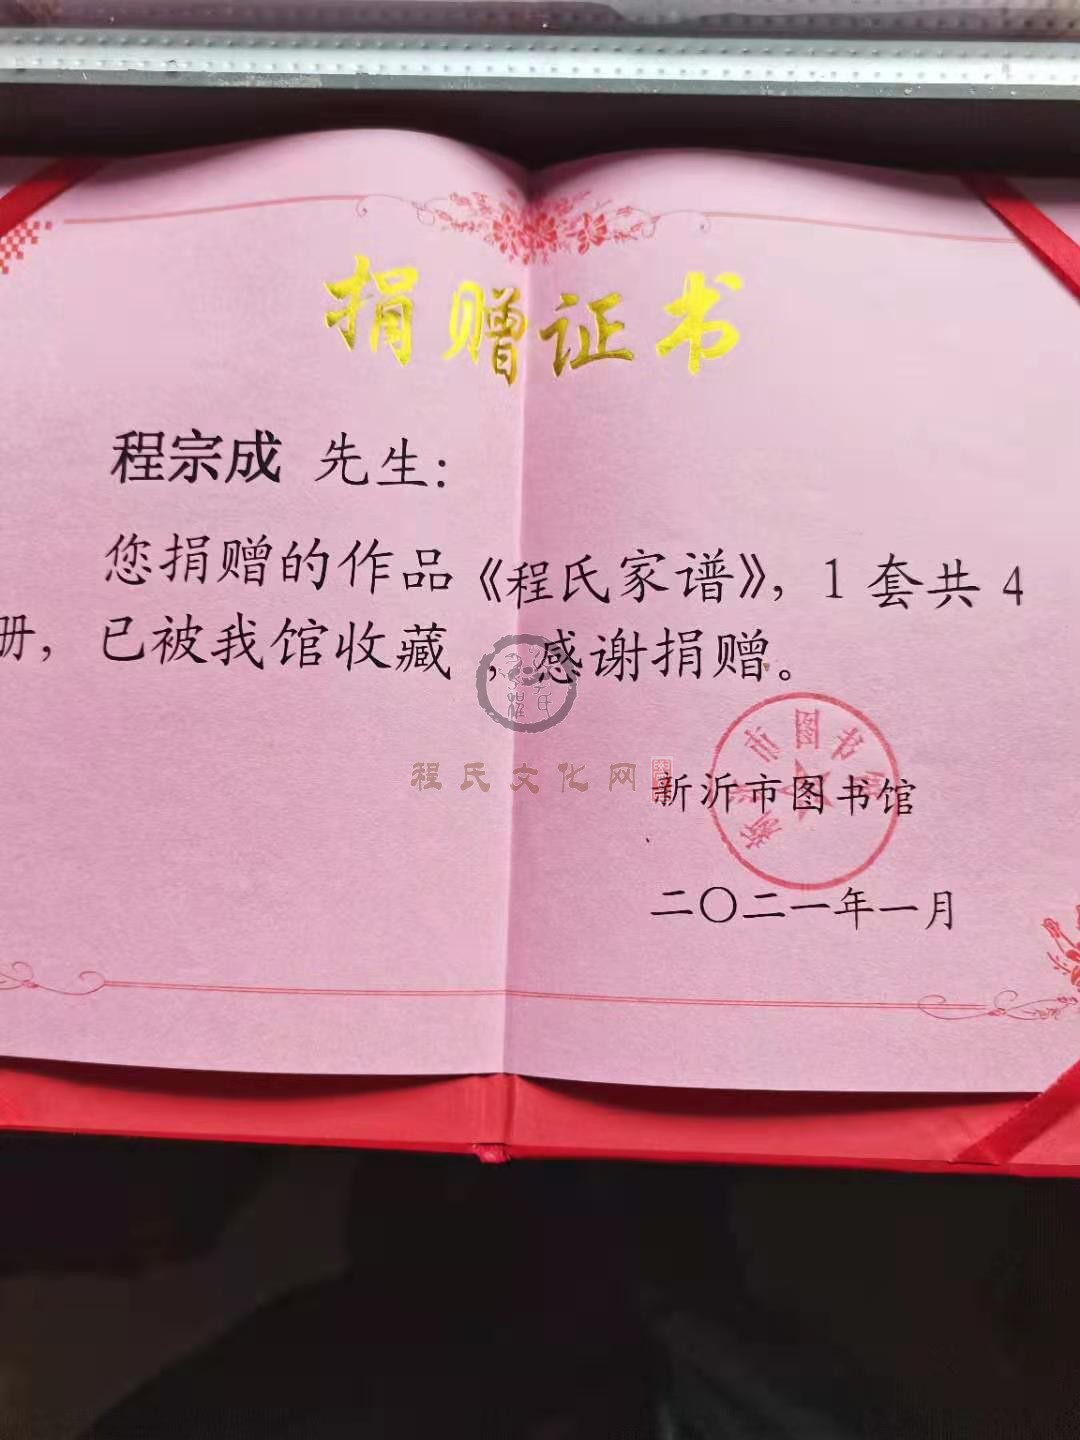 捐赠证书
程宗成 先生：
您捐赠的作品《程氏家谱》，1 套共 4
册，已被我馆收藏 ，感谢捐赠。
程氏文化网
新沂市图书馆
新沂市图书馆
二〇二一年一月